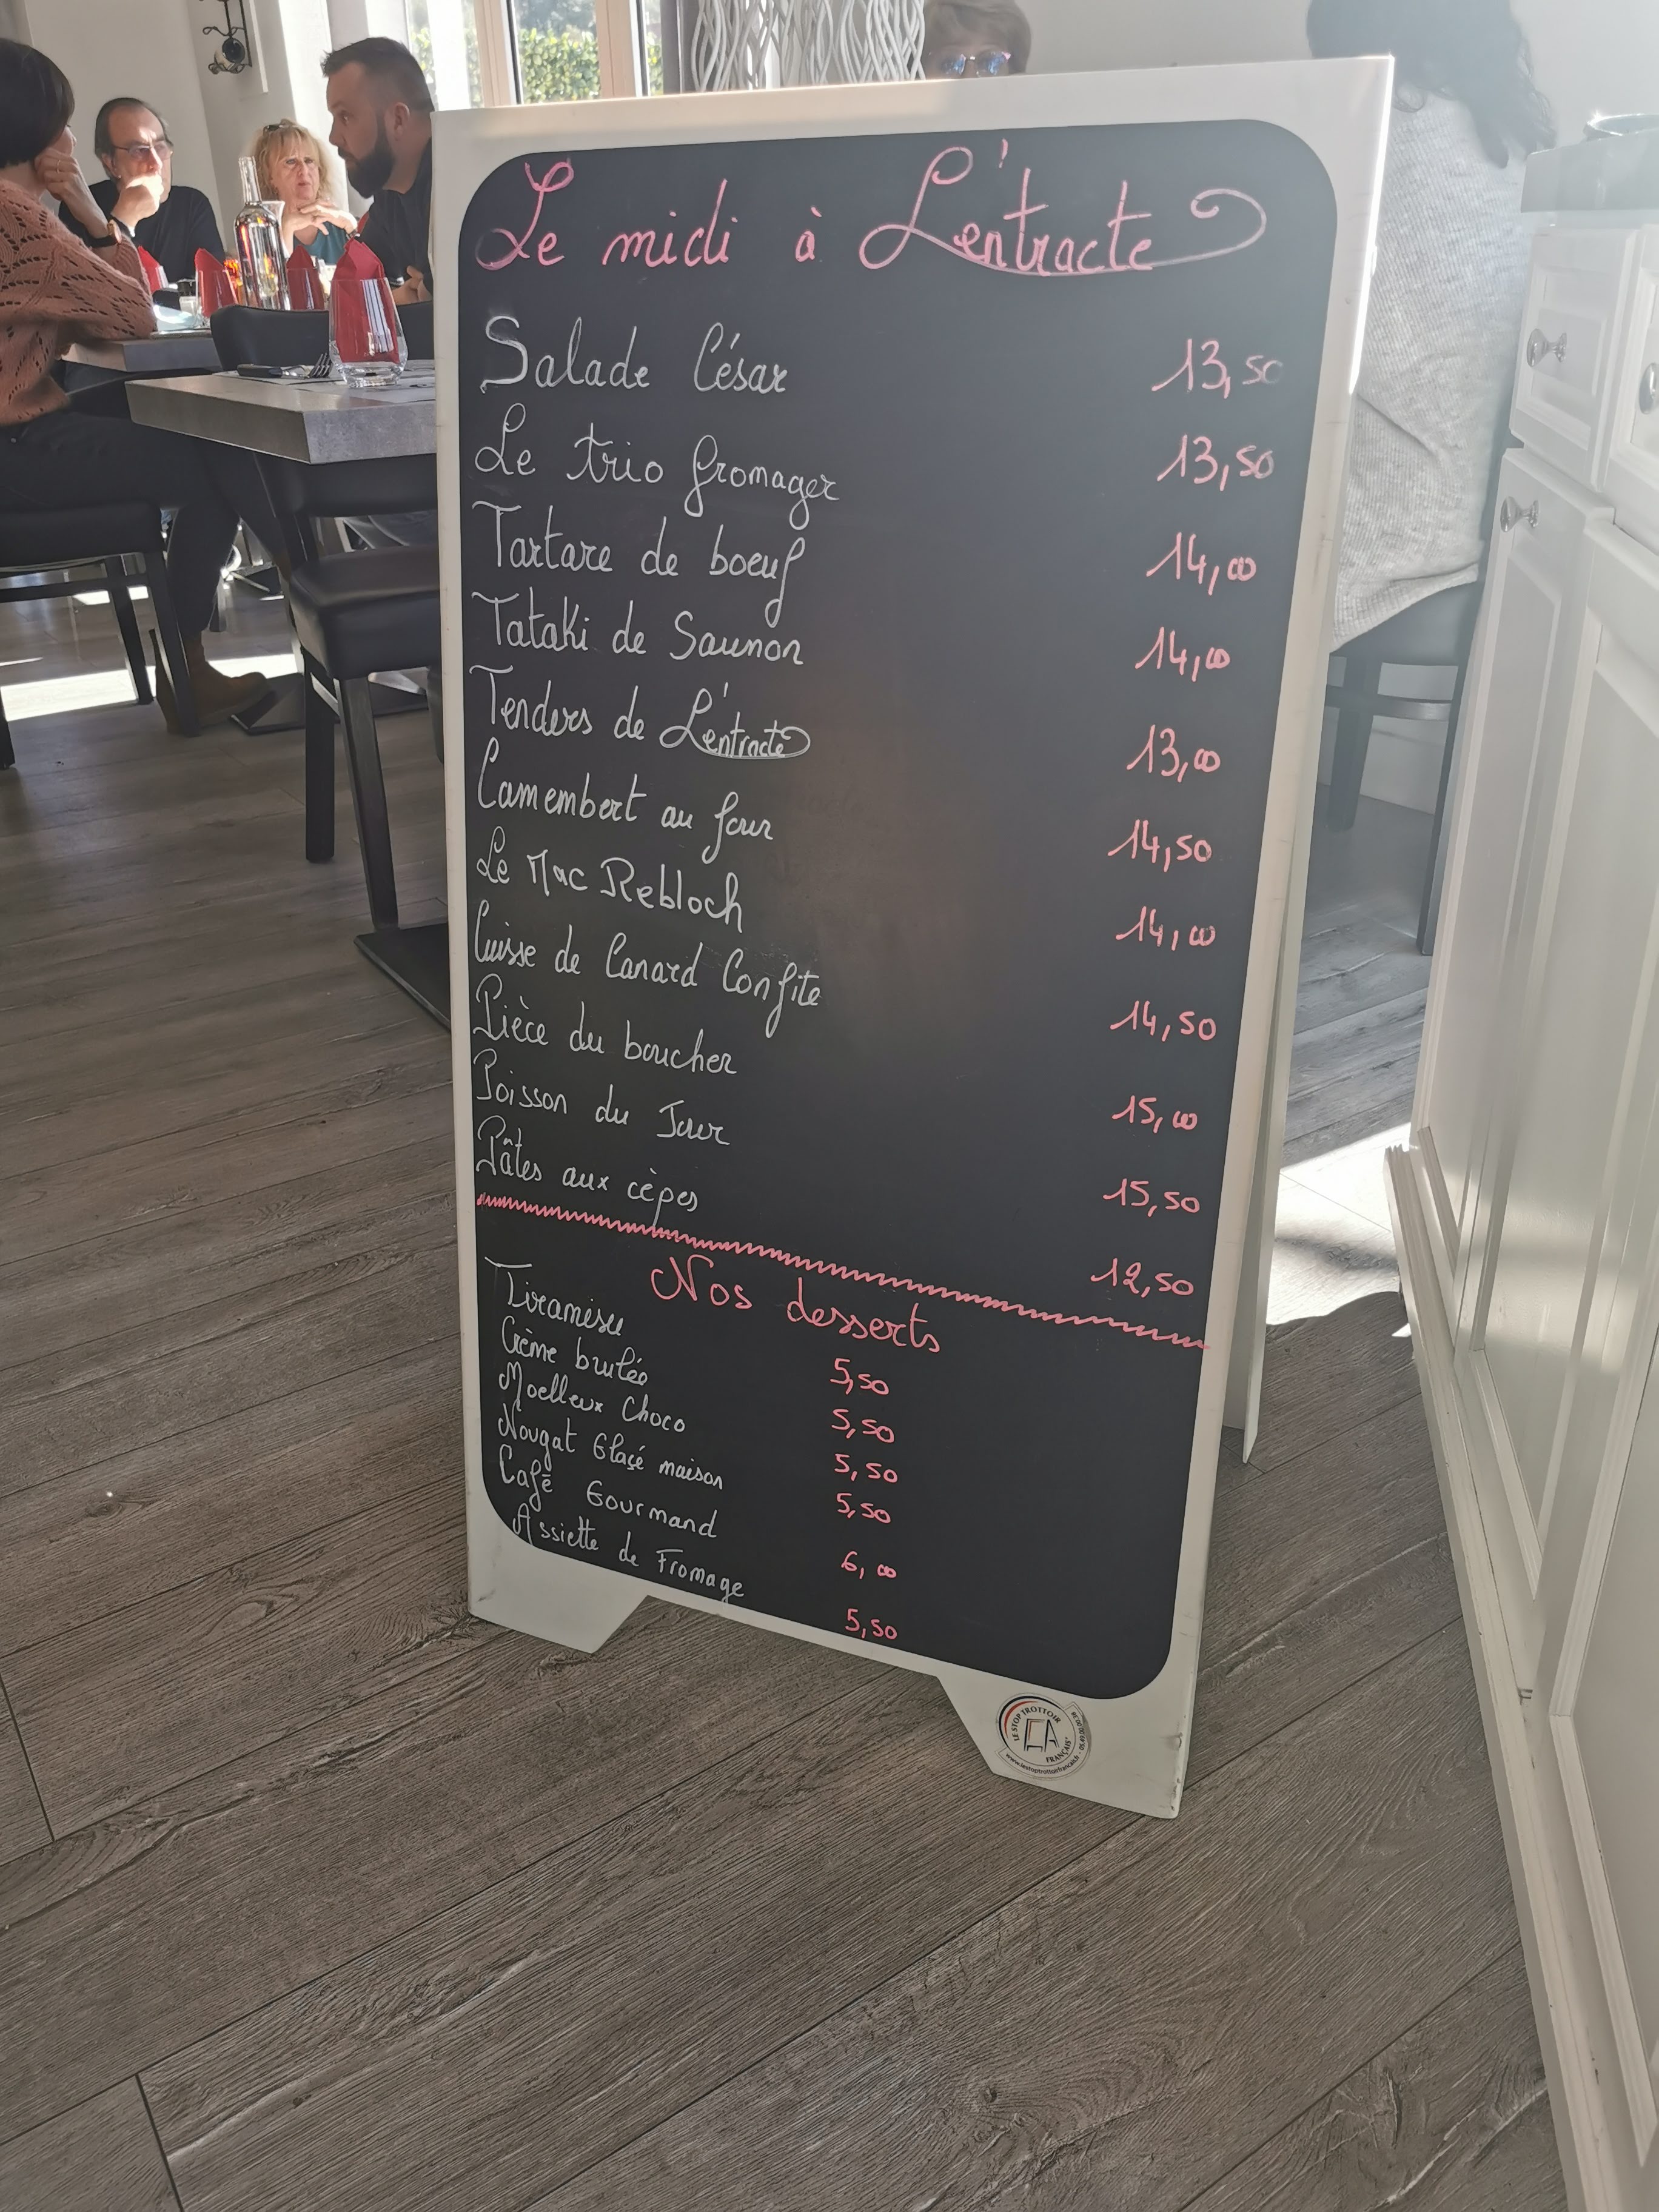 Le midi à L'entracte
Salade César 13,50
Le trio fromager 13,50
Tartare de boeuf 14,00
Tataki de Saumon 14,00
Tenders de L'entracte 13,00
Camembert au four 14,50
Le Mac Rebloch 14,00
Cuisse de Canard Confite 14,50
Pièce du boucher 15,00
Poisson du Jour 15,50
Pâtes aux cèpes 12,50
Nos desserts
Tiramisu 5,50
Crème brulée 5,50
Moelleux Choco 5,50
Nougat Glaçé maison 5,50
Café Gourmand 6,00
Assiette de Fromage 5,50
LE STOP TROTTOIR
FRANÇAIS
www.lestoptrottoirfrancais.fr